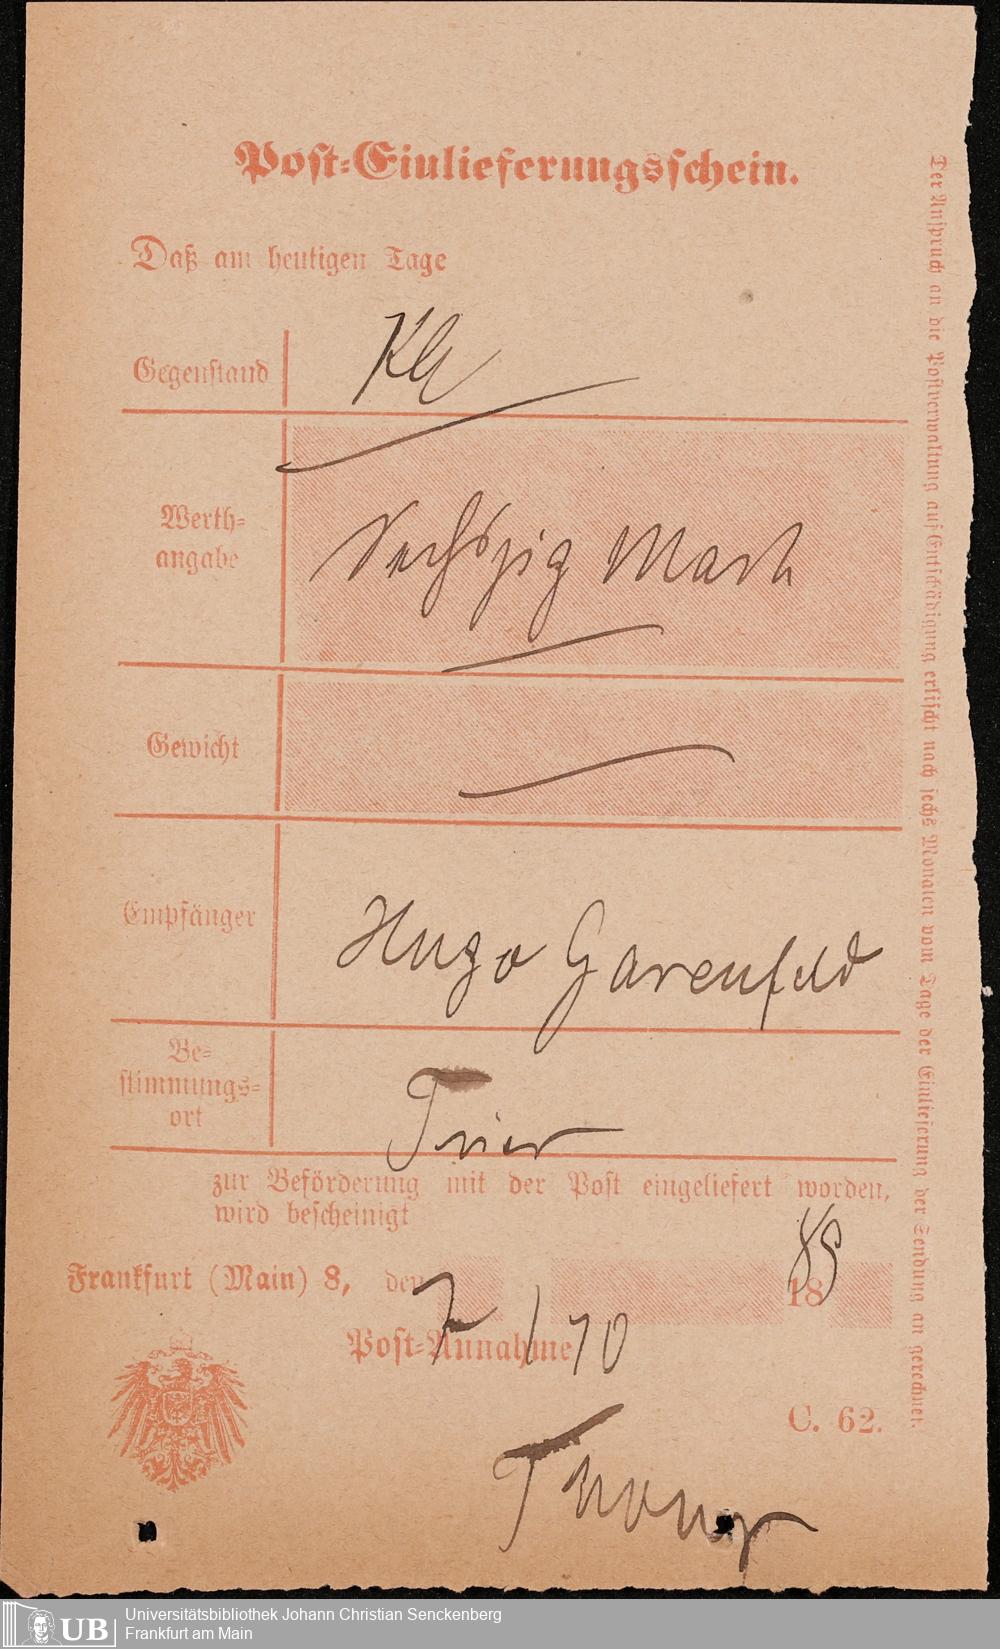 Post-Einlieferungsschein.
Daß am heutigen Tage
Gegenstand
Werth-
angabe
Sechszig Mark
Gewicht
Empfänger
Hugo Garenfeld
Be-
stimmungs-
ort
Trier
zur Beförderung mit der Post eingeliefert worden,
wird bescheinigt
Frankfurt (Main) 8, den 7/10 18
Post-Annahme
C. 62.
Der Anspruch an die Postverwaltung auf Entschädigung erlischt nach sechs Monaten vom Tage der Einlieferung der Sendung an gerechnet.
UB
Universitätsbibliothek Johann Christian Senckenberg
Frankfurt am Main